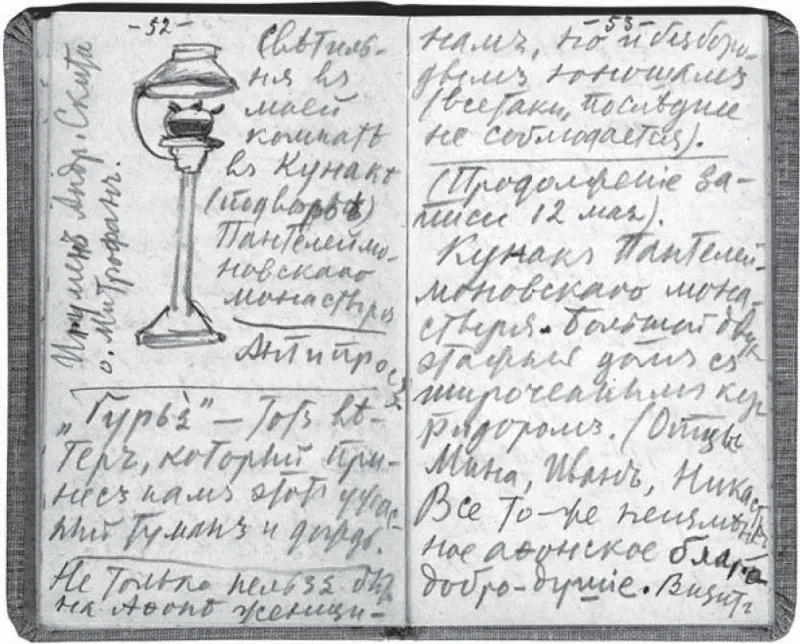 -52-
Игуменъ Андр. Скита
о. Митрофанъ.
Свѣтиль-
ня въ
моей
комнатѣ
въ Кунакѣ
(подворьѣ)
Пантелеймо-
новскаго
монастыря
Антипросъ
„Гурьѣ" — тотъ вѣ-
теръ, который при-
несъ намъ этотъ ужас-
ный туманъ и дождь.
Не только нельзя быть
на Аѳонѣ женщи-
-53-
намъ, но и безборо-
дымъ юношамъ
(всетаки, послѣднее
не соблюдается).
(Продолженіе за-
писи 12 мая).
Кунакъ Пантелей-
моновскаго мона-
стыря. Большой двух-
этажный домъ съ
широчайшимъ кор-
ридоромъ. (Отцы
Мина, Иванъ, Никастръ
Все то-же неизмѣн-
ное аѳонское благо
добро-душіе. Визитъ